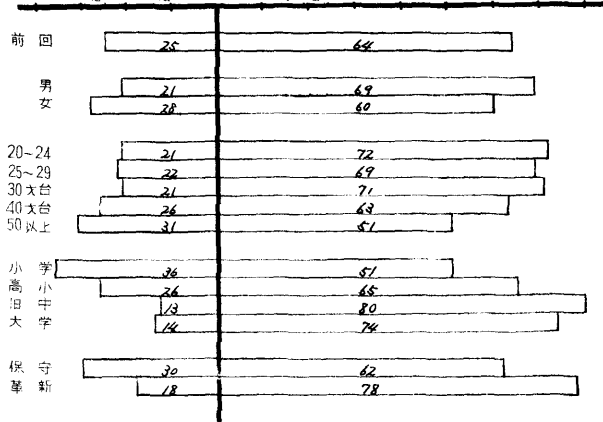 前回 25 64
男 21 69
女 28 60
20~24 21 72
25~29 22 69
30才台 21 71
40才台 26 63
50以上 31 51
小学 36 51
高小 26 65
旧中 13 80
大学 14 74
保守 30 62
革新 18 78